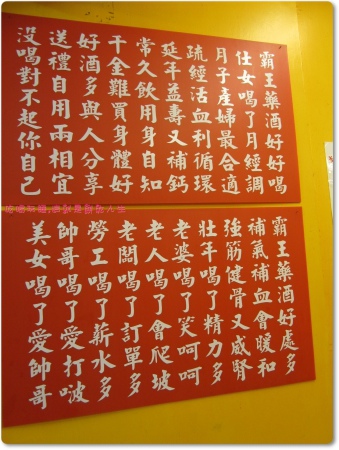 霸王藥酒好好喝
仕女喝了月經調
月子產婦最合適
疏經活血利循環
延年益壽又補鈣
常久飲用身自知
千金難買身體好
好酒多與人分享
送禮自用兩相宜
沒喝對不起你自己
霸王藥酒好處多
補氣補血會暖和
強筋健骨又威腎
壯年喝了精力多
老婆喝了笑呵呵
老人喝了會爬坡
老闆喝了訂單多
勞工喝了薪水多
帥哥喝了愛打啵
美女喝了愛帥哥